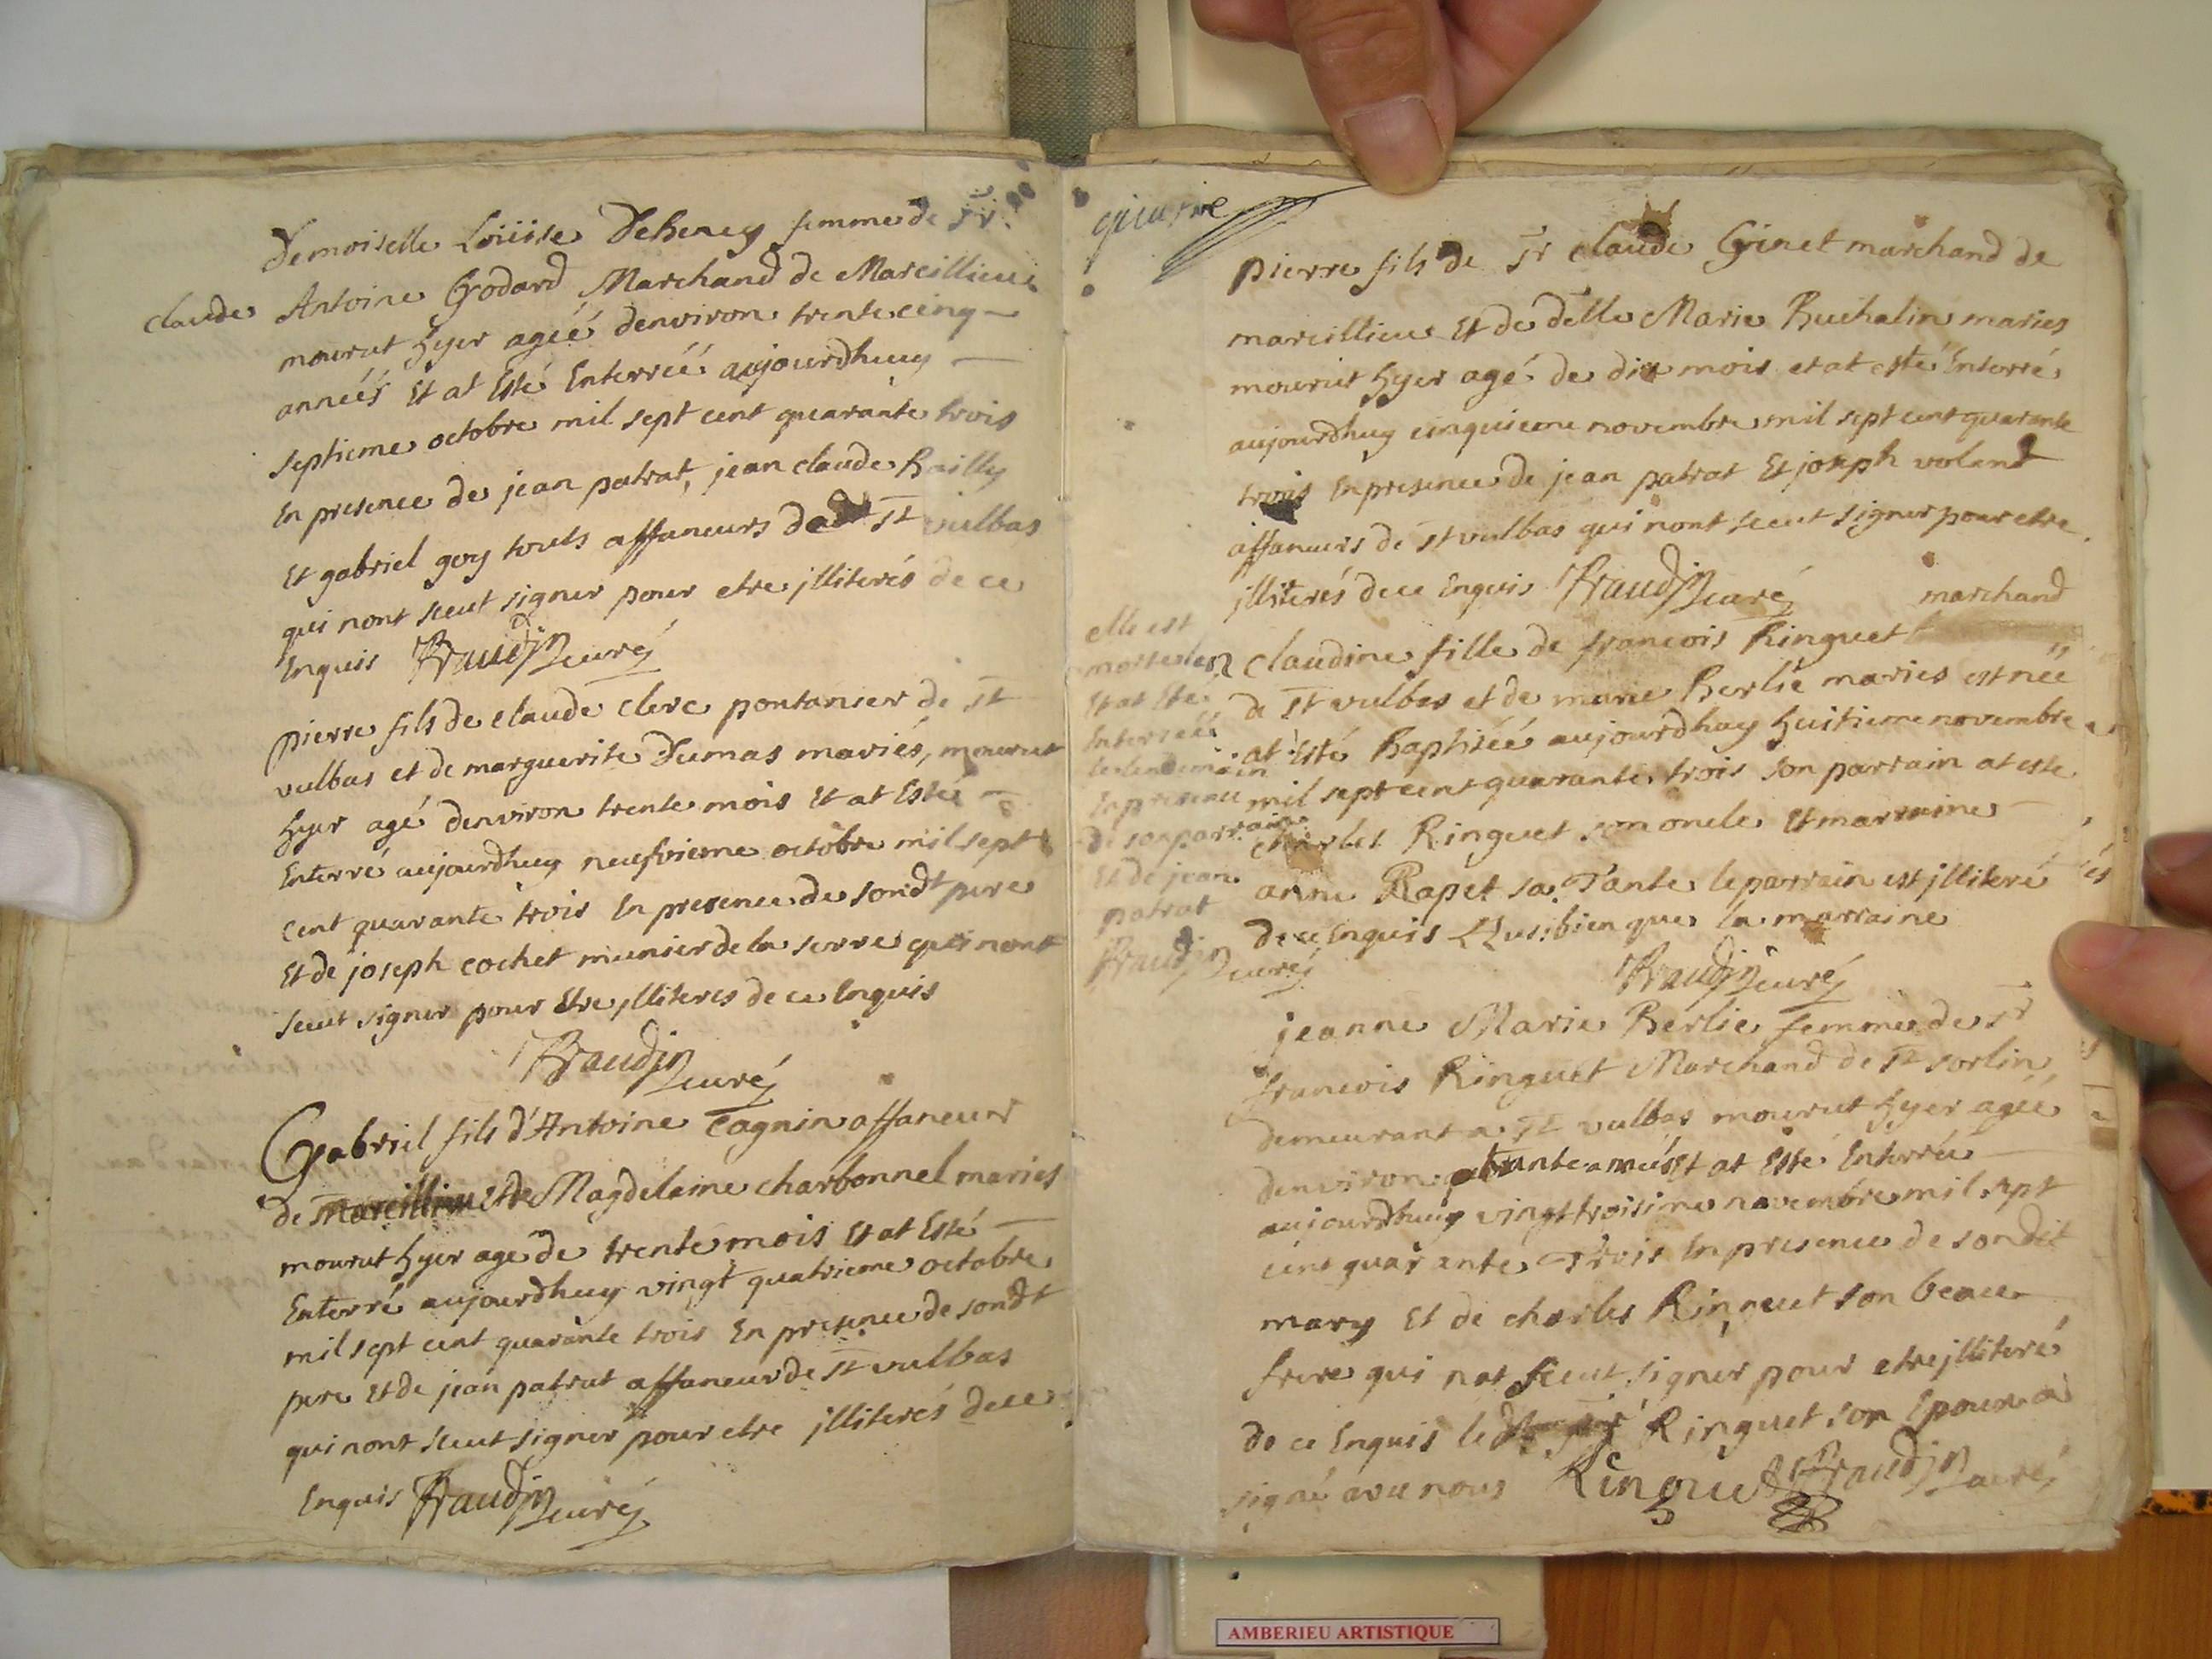 Demoiselle Loüise Deheney femme de Sr
claude Antoine Godard Marchand de Marcillieu
mourut hyer ageé denviron trente cinq
anneés Et at Esté Enterreé aujourdhuy
septieme octobre mil sept cent quarante trois
En presence de jean patrat, jean claude Bailly
Et gabriel goy touts affaneurs de St vulbas
qui nont sceut signer pour etre jlliterés de ce
Enquis Braudin curé
pierre fils de claude clerc pontanier de St
vulbas et de marguerite Dumas mariés, mourut
hyer agé denviron trente mois Et at Esté
Enterré aujourdhuy neufvieme octobre mil sept
cent quarante trois En presence de sondt pere
Et de joseph cochet munier de la serre qui nont
sceut signer pour Etre jlliteres de ce Enquis
Braudin curé
Gabriel fils d'Antoine Cagnin affaneur
de marcillieu et de Magdelaine charbonnel maries
mourut hyer age de trente mois Et at Esté
Enterré aujourdhuy vingt quatrieme octobre
mil sept cent quarante trois En presence de sondt
pere Et de jean patrat affaneur de St vulbas
qui nont sceut signer pour etre jlliterés de ce
Enquis Braudin curé
quatre
pierre fils de Sr claude Ginet marchand de
marcillieu Et de delle Marie Buchalin maries
mourut hyer agé de dix mois et at esté Enterré
aujourdhuy cinquieme novembre mil sept cent quarante
trois En presence de jean patrat Et joseph voland
affaneurs de St vulbas qui nont sceut signer pour etre
jlliterés de ce Enquis Braudin curé
marchand
claudine fille de francois Ringuet
de St vulbas et de marie Berlie maries est neé
at Esté Baptiseé aujourdhuy huitieme novembre
mil sept cent quarante trois son parrain at este
charles Ringuet son oncle Et marraine
anne Rapet sa Tante le parrain est jlliteré
de ce Enquis Aussi bien que la marraine
Braudin curé
elle est
morte le
Et at Ete
Enterreé
le lendemain
En presence
de son parrain
Et de jean
patrat
Braudin curé
jeanne Marie Berlie femme de Sr
francois Ringuet Marchand de St sorlin
demeurant a St vulbas mourut hyer ageé
denviron trante anneés Et at Esté Enterreé
aujourdhuy vingt troisime novembre mil sept
cent quarante Trois En presence de sondit
mary Et de charles Ringuet son beau
frere qui nat sceut signer pour etre jlliteré
de ce Enquis le dt Ringuet son Epoux a
signé avec nous Ringuet Braudin curé
AMBERIEU ARTISTIQUE